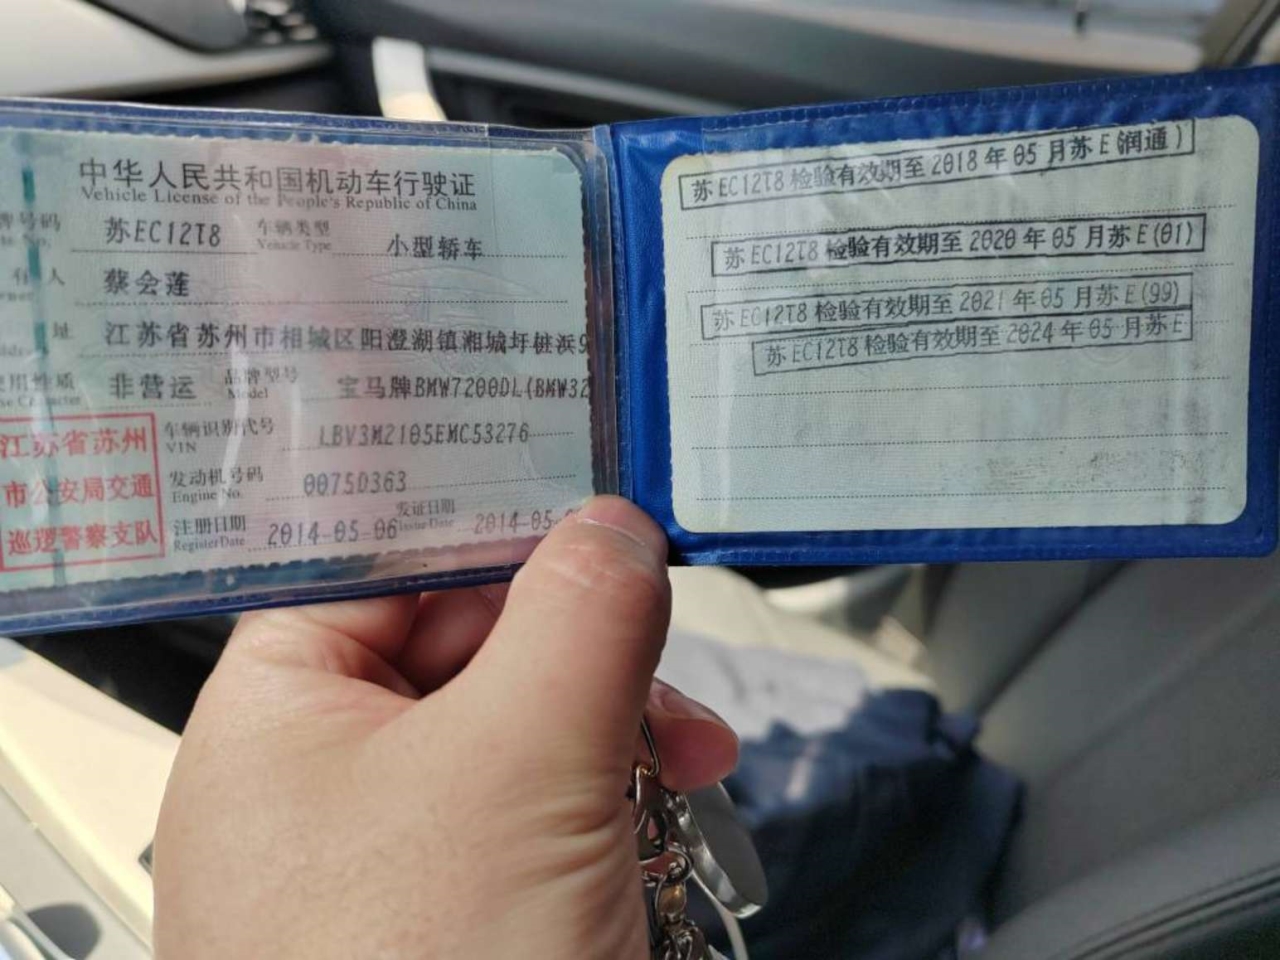 中华人民共和国机动车行驶证
Vehicle License of the People's Republic of China
牌号码 苏EC12T8 车辆类型 小型轿车
Vehicle Type
有 人 蔡会莲
址 江苏省苏州市相城区阳澄湖镇湘城圩桩浜9
用性质 非营运 品牌型号 宝马牌BMW7200DL(BMW32
Use Character Model
江苏省苏州
市公安局交通
巡逻警察支队
车辆识别代号 LBV3M2105EMC53276
VIN
发动机号码 0075D363
Engine No.
注册日期 2014-05-06 发证日期 2014-05-
Register Date Issue Date
苏EC12T8检验有效期至2018年05月苏E(润通)
苏EC12T8检验有效期至2020年05月苏E(01)
苏EC12T8检验有效期至2021年05月苏E(99)
苏EC12T8检验有效期至2024年05月苏E